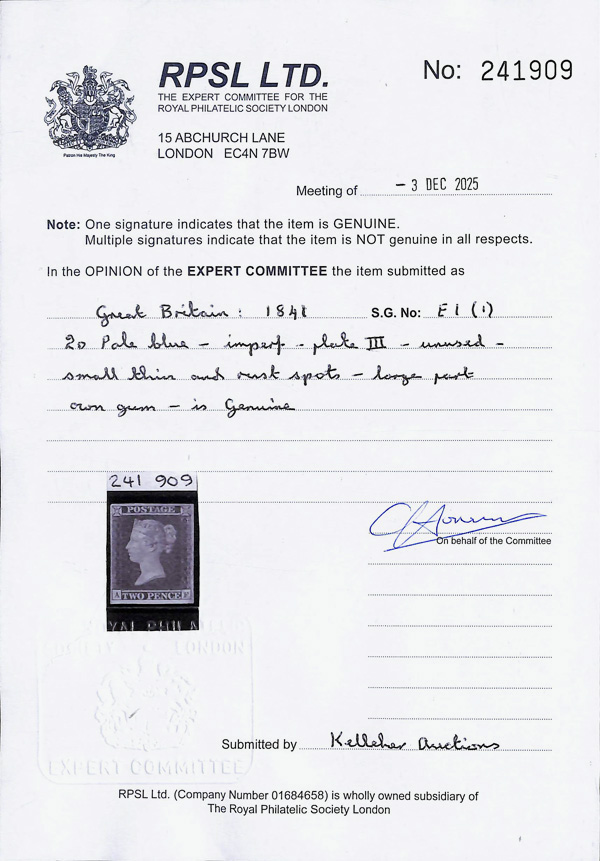 RPSL LTD.
THE EXPERT COMMITTEE FOR THE
ROYAL PHILATELIC SOCIETY LONDON
15 ABCHURCH LANE
LONDON EC4N 7BW
No: 241909
Patron His Majesty The King
Meeting of - 3 DEC 2025
Note: One signature indicates that the item is GENUINE.
Multiple signatures indicate that the item is NOT genuine in all respects.
In the OPINION of the EXPERT COMMITTEE the item submitted as
Great Britain: 1841 S.G. No: E1 (1)
2D Pale blue - imperf - plate III - unused -
small thin and rust spots - large part
own gum - is Genuine
241 909
POSTAGE
A TWO PENCE
On behalf of the Committee
LONDON
EXPERT COMMITTEE
Submitted by Kelleher Auctions
RPSL Ltd. (Company Number 01684658) is wholly owned subsidiary of
The Royal Philatelic Society London